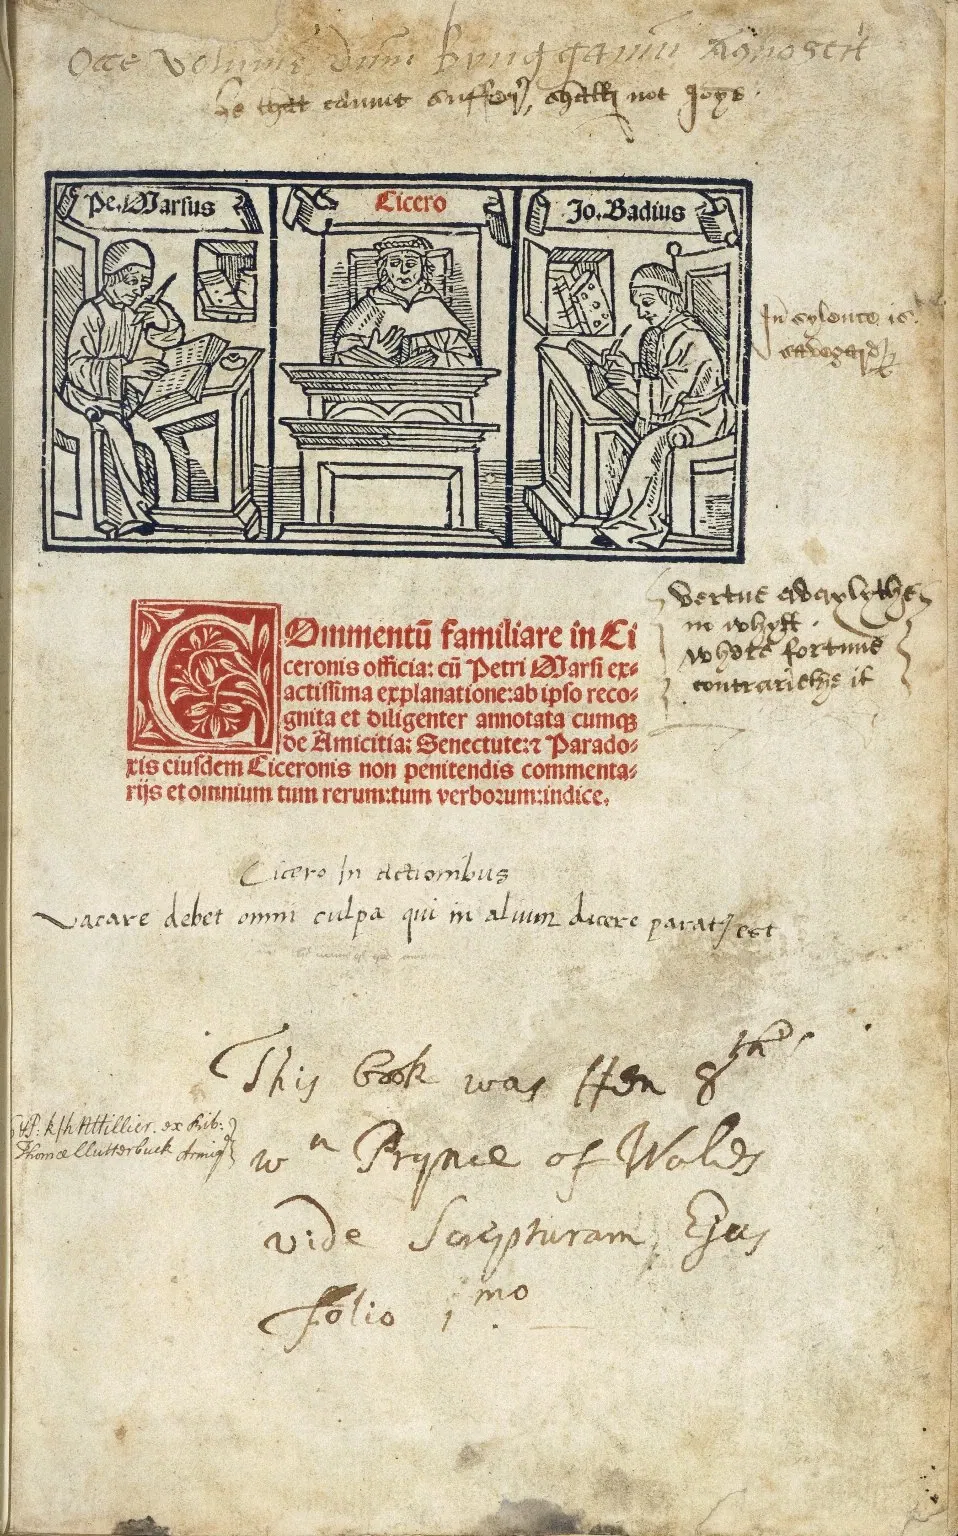 he that cannot suffer, shall not joye.
Pe. Marsus
Cicero
Jo. Badius
In sylence is
vertue avaylythe
in whyst.
whote fortune
contrariethe it
COmmentū familiare in Ci
ceronis officia: cū Petri Marsi ex-
actissima explanatione: ab ipso reco-
gnita et diligenter annotata cumqꝫ
de Amicitia: Senectute: ⁊ Parado-
xis eiusdem Ciceronis non penitendis commenta-
rijs et omnium tum rerum: tum verborum: indice.
Cicero In actionibus
Vacare debet omni culpa qui in alium dicere paratꝰ est
This book was Hen 8th
wn Prynce of Wales
vide Scripturam Ejus
folio 1mo
ex Lib:
Thomæ Clutterbuck Armigr